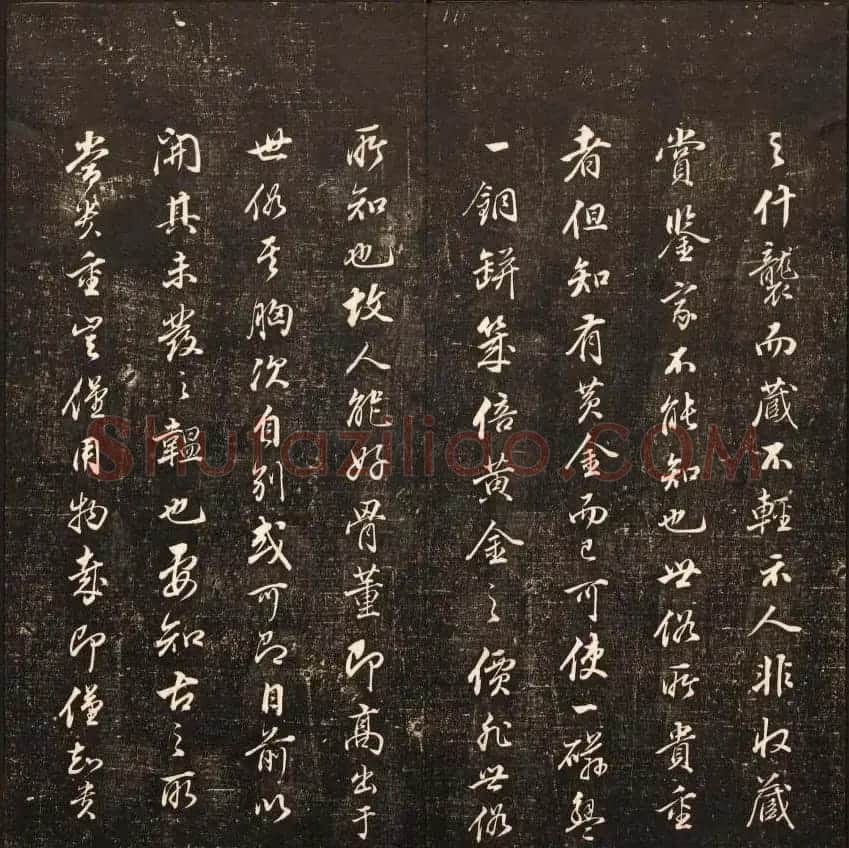 之什襲而藏不輕示人非收藏
賞鑒家不能知也世俗所貴重
者但知有黃金而已可使一磁盌
一銅缾幾倍黃金之價非世俗
所知也故人能好骨董即高出于
世俗其胸次自別或可即目前以
開其未發之韞也要知古之所
常貴重豈僅用物哉即僅知貴
Shufaziliao.COM